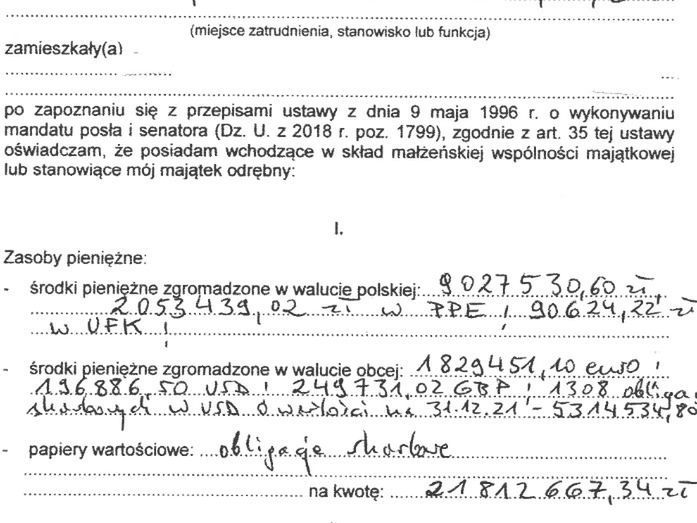 (miejsce zatrudnienia, stanowisko lub funkcja)
zamieszkały(a)
po zapoznaniu się z przepisami ustawy z dnia 9 maja 1996 r. o wykonywaniu
mandatu posła i senatora (Dz. U. z 2018 r. poz. 1799), zgodnie z art. 35 tej ustawy
oświadczam, że posiadam wchodzące w skład małżeńskiej wspólności majątkowej
lub stanowiące mój majątek odrębny:
I.
Zasoby pieniężne:
- środki pieniężne zgromadzone w walucie polskiej: 9027530,60 zł,
2053439,02 zł w PPE, 90624,22 zł
w UFK;
- środki pieniężne zgromadzone w walucie obcej: 1829451,10 euro;
196886,50 USD; 249731,02 GBP; 1308 obliga.
skarbowych w USD o wartości na 31.12.21 - 5314534,80
- papiery wartościowe: obligacje skarbowe
na kwotę: 21812667,34 zł